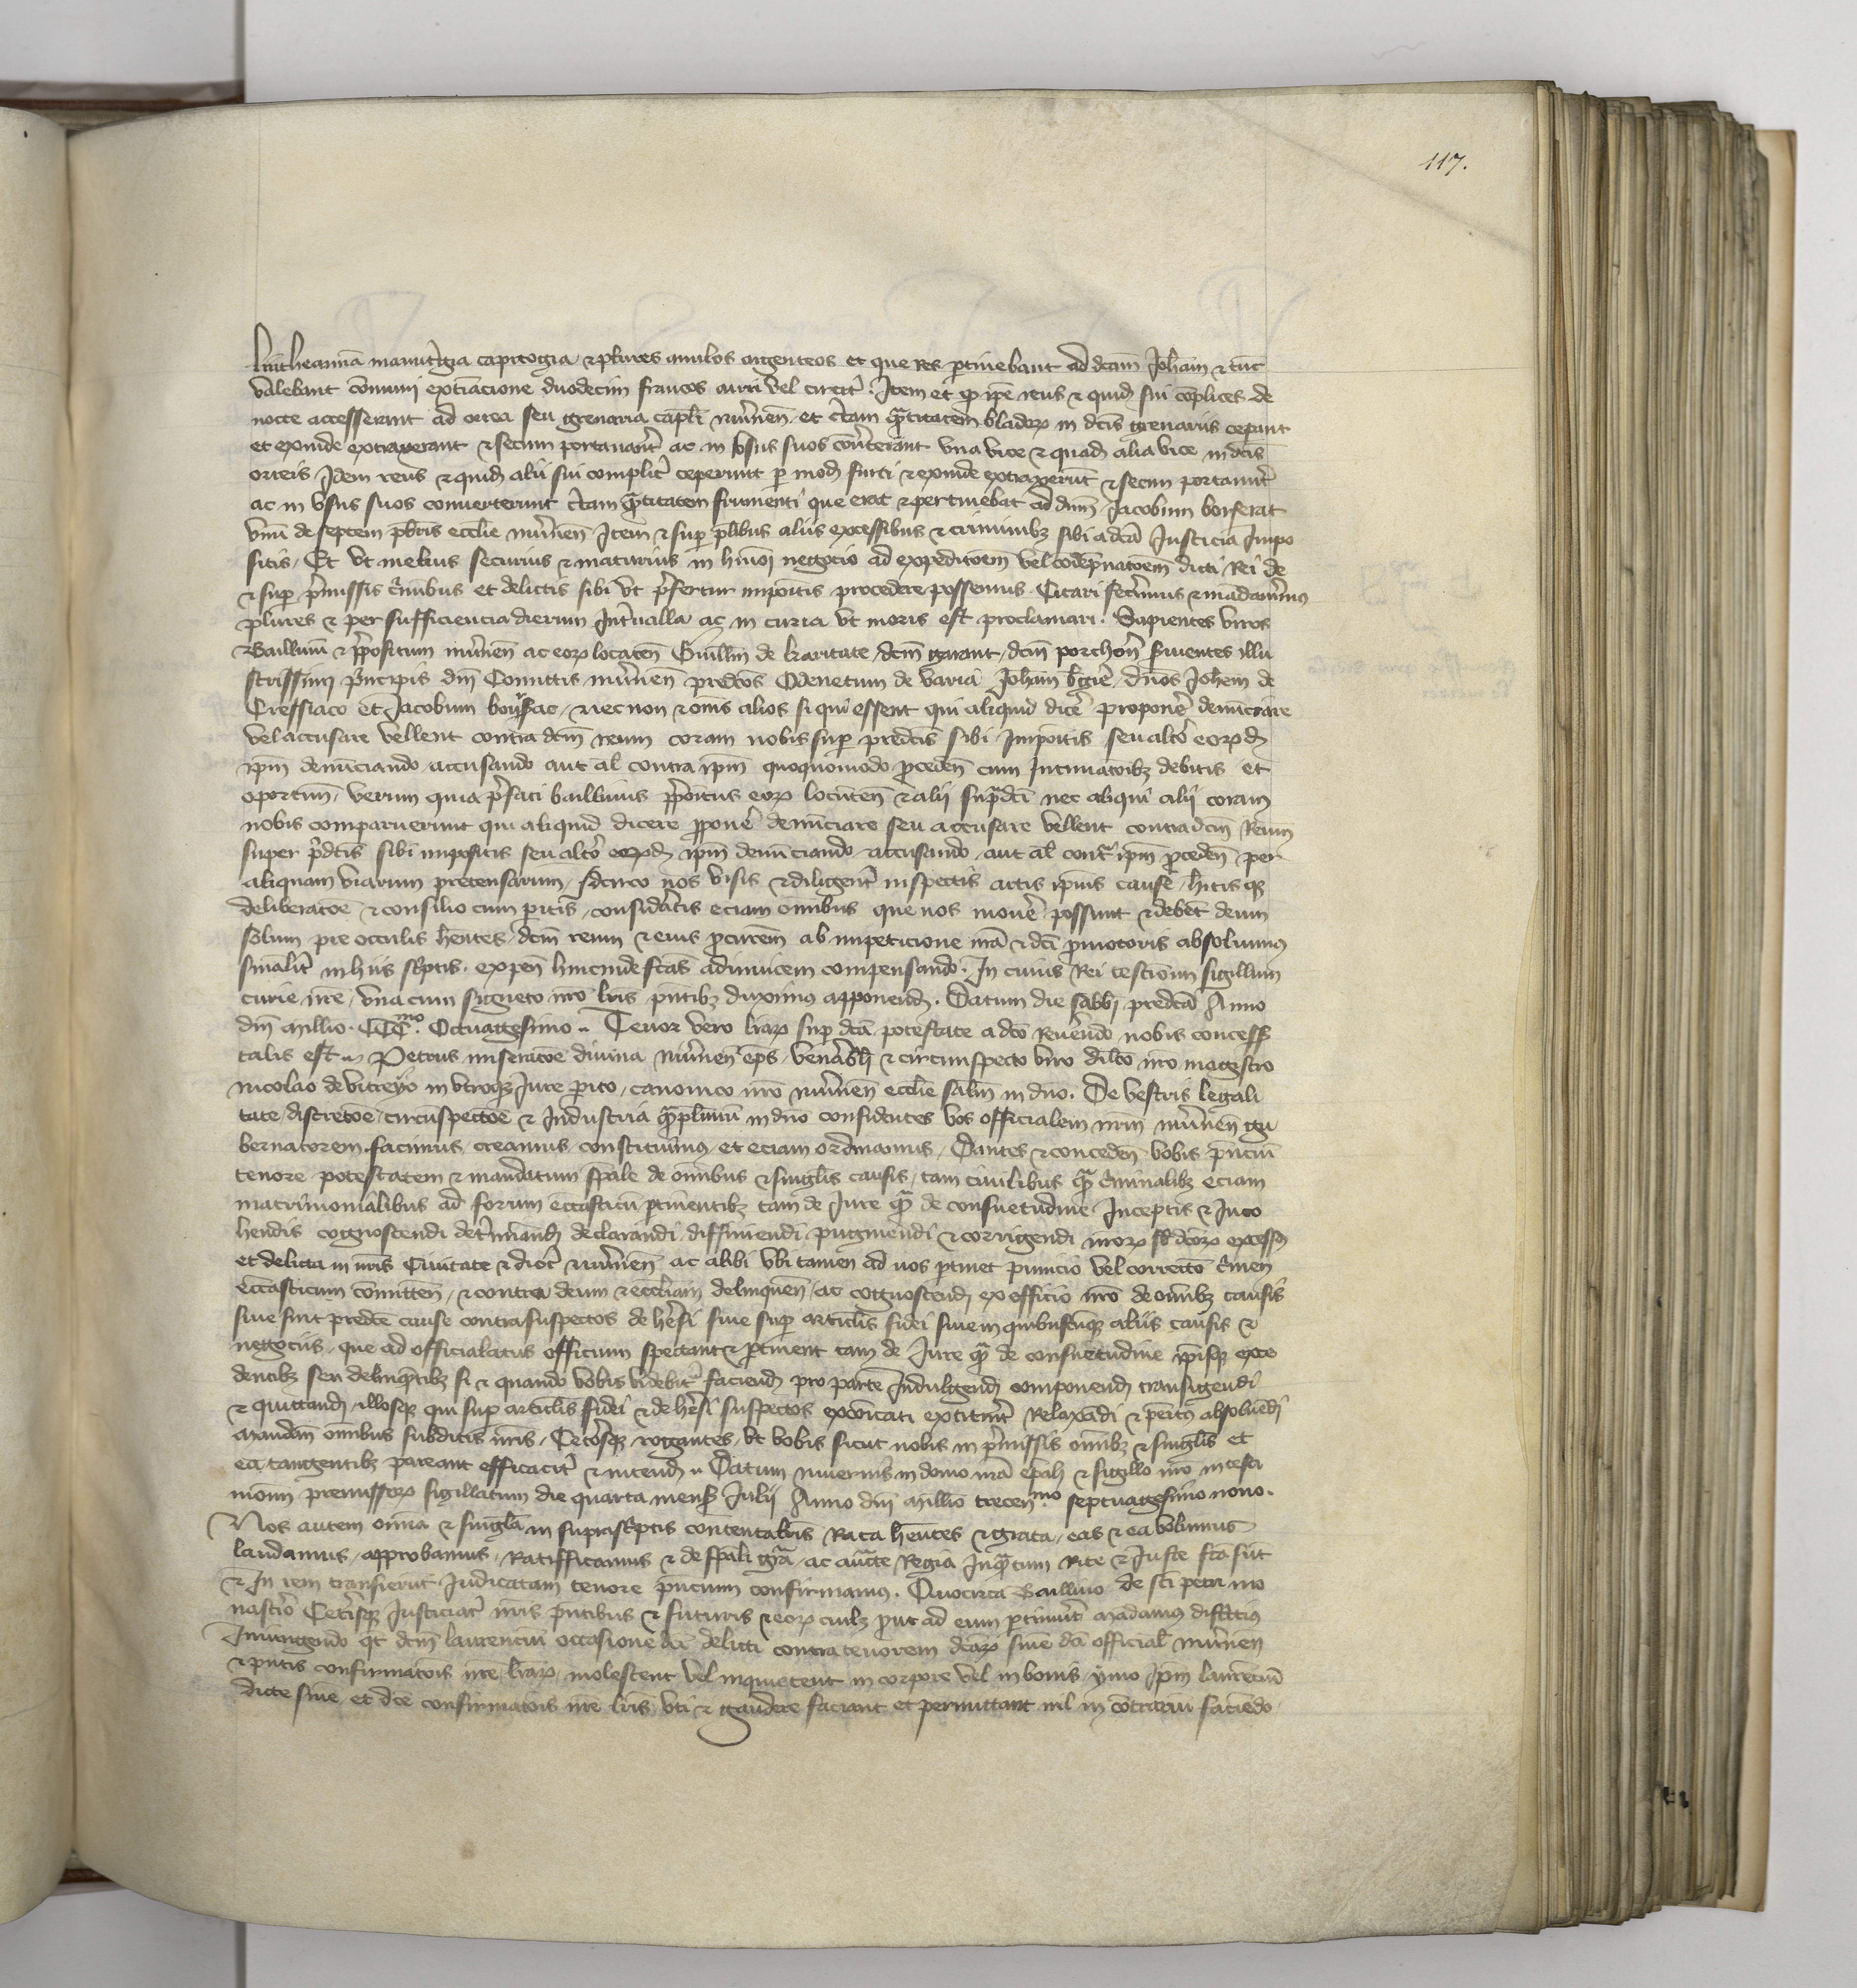 117.
lintheamina manutergia capitogia & plures anulos argenteos et que res ptinebant ad dcam Joham & tunc
valebant comuni extiacione duodecim francos auri vel circit. Item et qp ipe reus & quid sui coplices de
nocte accesserant ad orrea seu grenaria capli nivnen. et ctam qtitatem bladorz in dcis grenariis ceperunt
et exinde extraxerant & secum portavant ac in usus suos convterant una vice & quad alia vice in dcis
orreis Idem reus & quid alii sui complic ceperunt p mod furti & exinde extraxerut & secum portavint
ac in usus suos converterunt ctam qtitatem frumenti que erat & pertinebat ad dnm Jacobum borserat
unu de septem pbris ecclie nivnen Item & sup plibus aliis excessibus & criminibz sibi a dca Justicia Impo
sitis. Et ut melius securius & maturius in hmoi negocio ad expeditoem vel codepnatoem dicti Rei de
& sup pmissis cminibus et delictis sibi ut pfertur impoitis procedere possemus. Citari fecimus & madavimus
plures & per sufficiencia dierum Intvalla ac in curia ut moris est proclamari. Sapientes viros
Baillivum & ppositum nivnen ac eorz locaten Guillm de karitate dcm garant dcm porchon svientes illu
strissimi principis dni Comitis nivnen predcos Odenetum de varia Joham bgier, dnos Johem de
Cressiaco et Jacobum boussac, necnon & omis alios si qui essent qui aliquid dice proponere denunciare
vel accusare vellent contra dcm reum coram nobis sup predcis sibi Impoitis seu altero eorzd
ipm denunciando accusando aut al contra ipm quoquomodo pceden cum Intimatoibz debitis et
oportun. Verum quia pfati baillivus ppoitus eorz locuten & alii supdci nec aliqui alii coram
nobis comparuerunt qui aliquid dicere pponere denunciare seu accusare vellent contra dcm Reum
super pdcis sibi impositis seu altero eorzd ipm denunciando accusando aut al contra ipm pceden per
aliquam viarum pretensarum, Idcirco nos visis & diligent inspectis actis ipius cause, hitisqz
deliberatoe & consilio cum peritis, consideratis eciam omnibus que nos movere possunt & debent deum
solum pre occulis hentes, dcm reum & eius pcurem ab impeticione nra & dci pmotoris absolvimus
finalit in hiis scptis. expen hincinde fcas adinvicem compensando. In cuius Rei testioium sigillum
curie nre, una cum signeto nro lris pntibz duximus apponend. Datum die sabbi predca Anno
dni millio. CCCmo. Octuagesimo. Tenor vero lrarz sup dca potestate a dco Reverendo nobis concess
talis est. Petrus miseratoe divina nivnen eps. venerabili & circunspecto viro dilco nro magistro
nicolao de vitreyo in utroqz Jure pito, canonico nro nivnen ecclie saltm in dno. De vestris legali
tate, discretoe, circuspectoe & Industria qplimum in dno confidentes vos officialem nrm nivnen gu
bernatorem facimus, creamus constituimus, et eciam ordinamus, Dantes & conceden vobis pncium
tenore potestatem & mandatum spale de omibus & singlis causis, tam civilibus qm cminalibz eciam
matrimonialibus ad forum eccasticu ptinentibz tam de Jure qm de consuetudine Inceptis & Inco
hendis cognoscendi detminand declarandi diffiniendi pugniendi & corrigendi nrorz sbdcorz excessus
et delicta in nris Civitate & dioc nivnen ac alibi ubi tamen ad nos ptinet punicio vel correcto cimen
eccasticum comitten, & contra deum & eccliam delinquen, ac cognoscend ex officio nro de omibz causis
sive sint predce cause contra suspectos de heresi sive sup articlis fidei sive in quibuscuqz aliis causis &
negociis, que ad officialatus officium spectant & ptinent tam de Jure qm de consuetudine ipisqz exce
dentibz seu delinqntibz si & quando vobis videbit faciend pro parte Indulgend componend transigendi
& quittand, illosqz qui sup articlis fidei & de heresi suspectos excoicati extiterint Relaxadi & penitus absolvedi
Mandam omibus subditis nris, Ceterosqz rogantes, ut vobis sicut nobis in pmissis omibz & singlis et
ea tangentibz pareant efficacit & intend. Datum nivernis in domo nra epali & sigillo nro in testi
monium premissorz sigillatum die quarta mens Julii Anno dni millio trecenmo septuagesimo nono.
Nos autem omia & singla in suprascptis contenta lris Rata hentes & grata, eas & ea volumus
laudamus, approbamus, Ratifficamus & de spali gra, ac aucte Regia Inqtum Rite & Juste fca sut
& In rem transierut Judicatam tenore pncium confirmamus. Quocirca Baillivo de sci petri mo
nastio Ceterisqz Justiciar nris pntibus & futuris & eorz cuilz prout ad eum ptinuit madamus districtius
Iniungendo qt dcm laurencium occasione dci delicti contra tenorem dcarz snie dci official nivnen
& pntis confirmatois nre lrarz, molestent vel inquietent in corpore vel in bonis, ymo ipm laurencium
dicte snie et dce confirmatois nre lris uti & gaudere faciant et permittant nil in cotrariu faciedo.